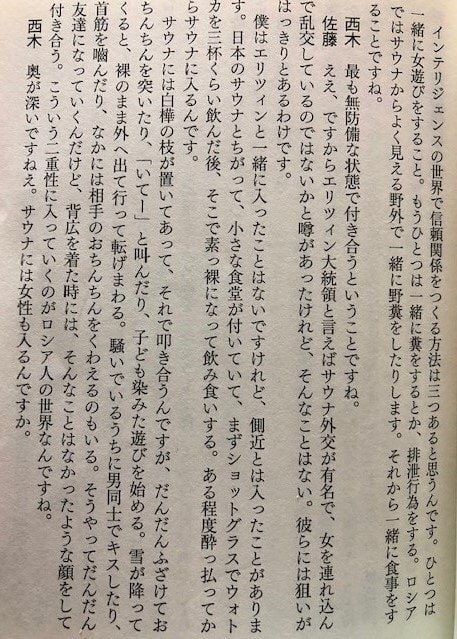 インテリジェンスの世界で信頼関係をつくる方法は三つあると思うんです。ひとつは
一緒に女遊びをすること。もうひとつは一緒に糞をするとか、排泄行為をする。ロシア
ではサウナからよく見える野外で一緒に野糞をしたりします。それから一緒に食事をす
ることですね。
西木　最も無防備な状態で付き合うということですね。
佐藤　ええ、ですからエリツィン大統領と言えばサウナ外交が有名で、女を連れ込ん
で乱交しているのではないかと噂があったけれど、そんなことはない。彼らには狙いが
はっきりとあるわけです。
僕はエリツィンと一緒に入ったことはないですけれど、側近とは入ったことがありま
す。日本のサウナとちがって、小さな食堂が付いていて、まずショットグラスでウォト
カを三杯くらい飲んだ後、そこで素っ裸になって飲み食いする。ある程度酔っ払ってか
らサウナに入るんです。
サウナには白樺の枝が置いてあって、それで叩き合うんですが、だんだんふざけてお
ちんちんを突いたり、「いてー」と叫んだり、子ども染みた遊びを始める。雪が降って
くると、裸のまま外へ出て行って転げまわる。騒いでいるうちに男同士でキスしたり、
首筋を噛んだり、なかには相手のおちんちんをくわえるのもいる。そうやってだんだん
友達になっていくんだけど、背広を着た時には、そんなことはなかったような顔をして
付き合う。こういう二重性に入っていくのがロシア人の世界なんですね。
西木　奥が深いですねえ。サウナには女性も入るんですか。